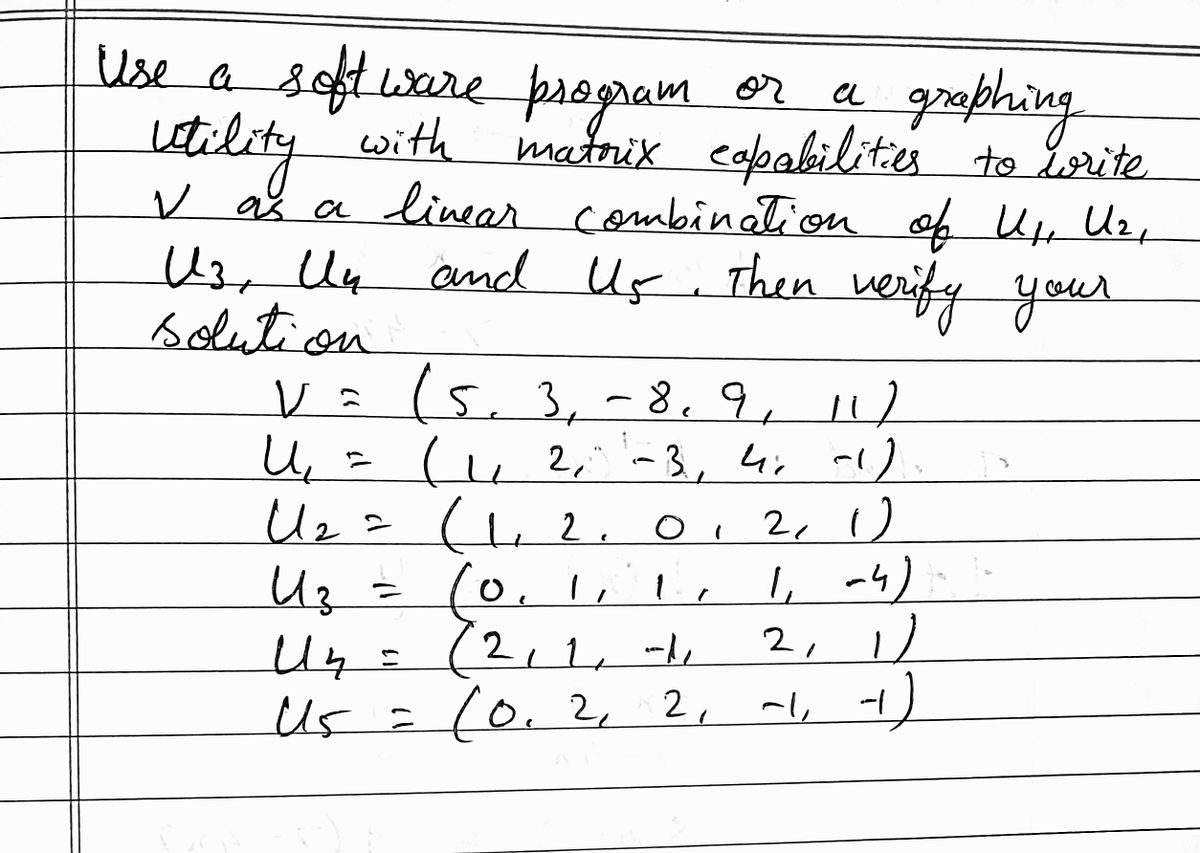 Use a software program or a graphing
utility with matrix capabilities to write
V as a linear combination of U1, U2,
U3, U4 and U5. Then verify your
solution
V = (5, 3, -8, 9, 11)
U1 = (1, 2, -3, 4, -1)
U2 = (1, 2, 0, 2, 1)
U3 = (0, 1, 1, 1, -4)
U4 = (2, 1, -1, 2, 1)
U5 = (0, 2, 2, -1, -1)